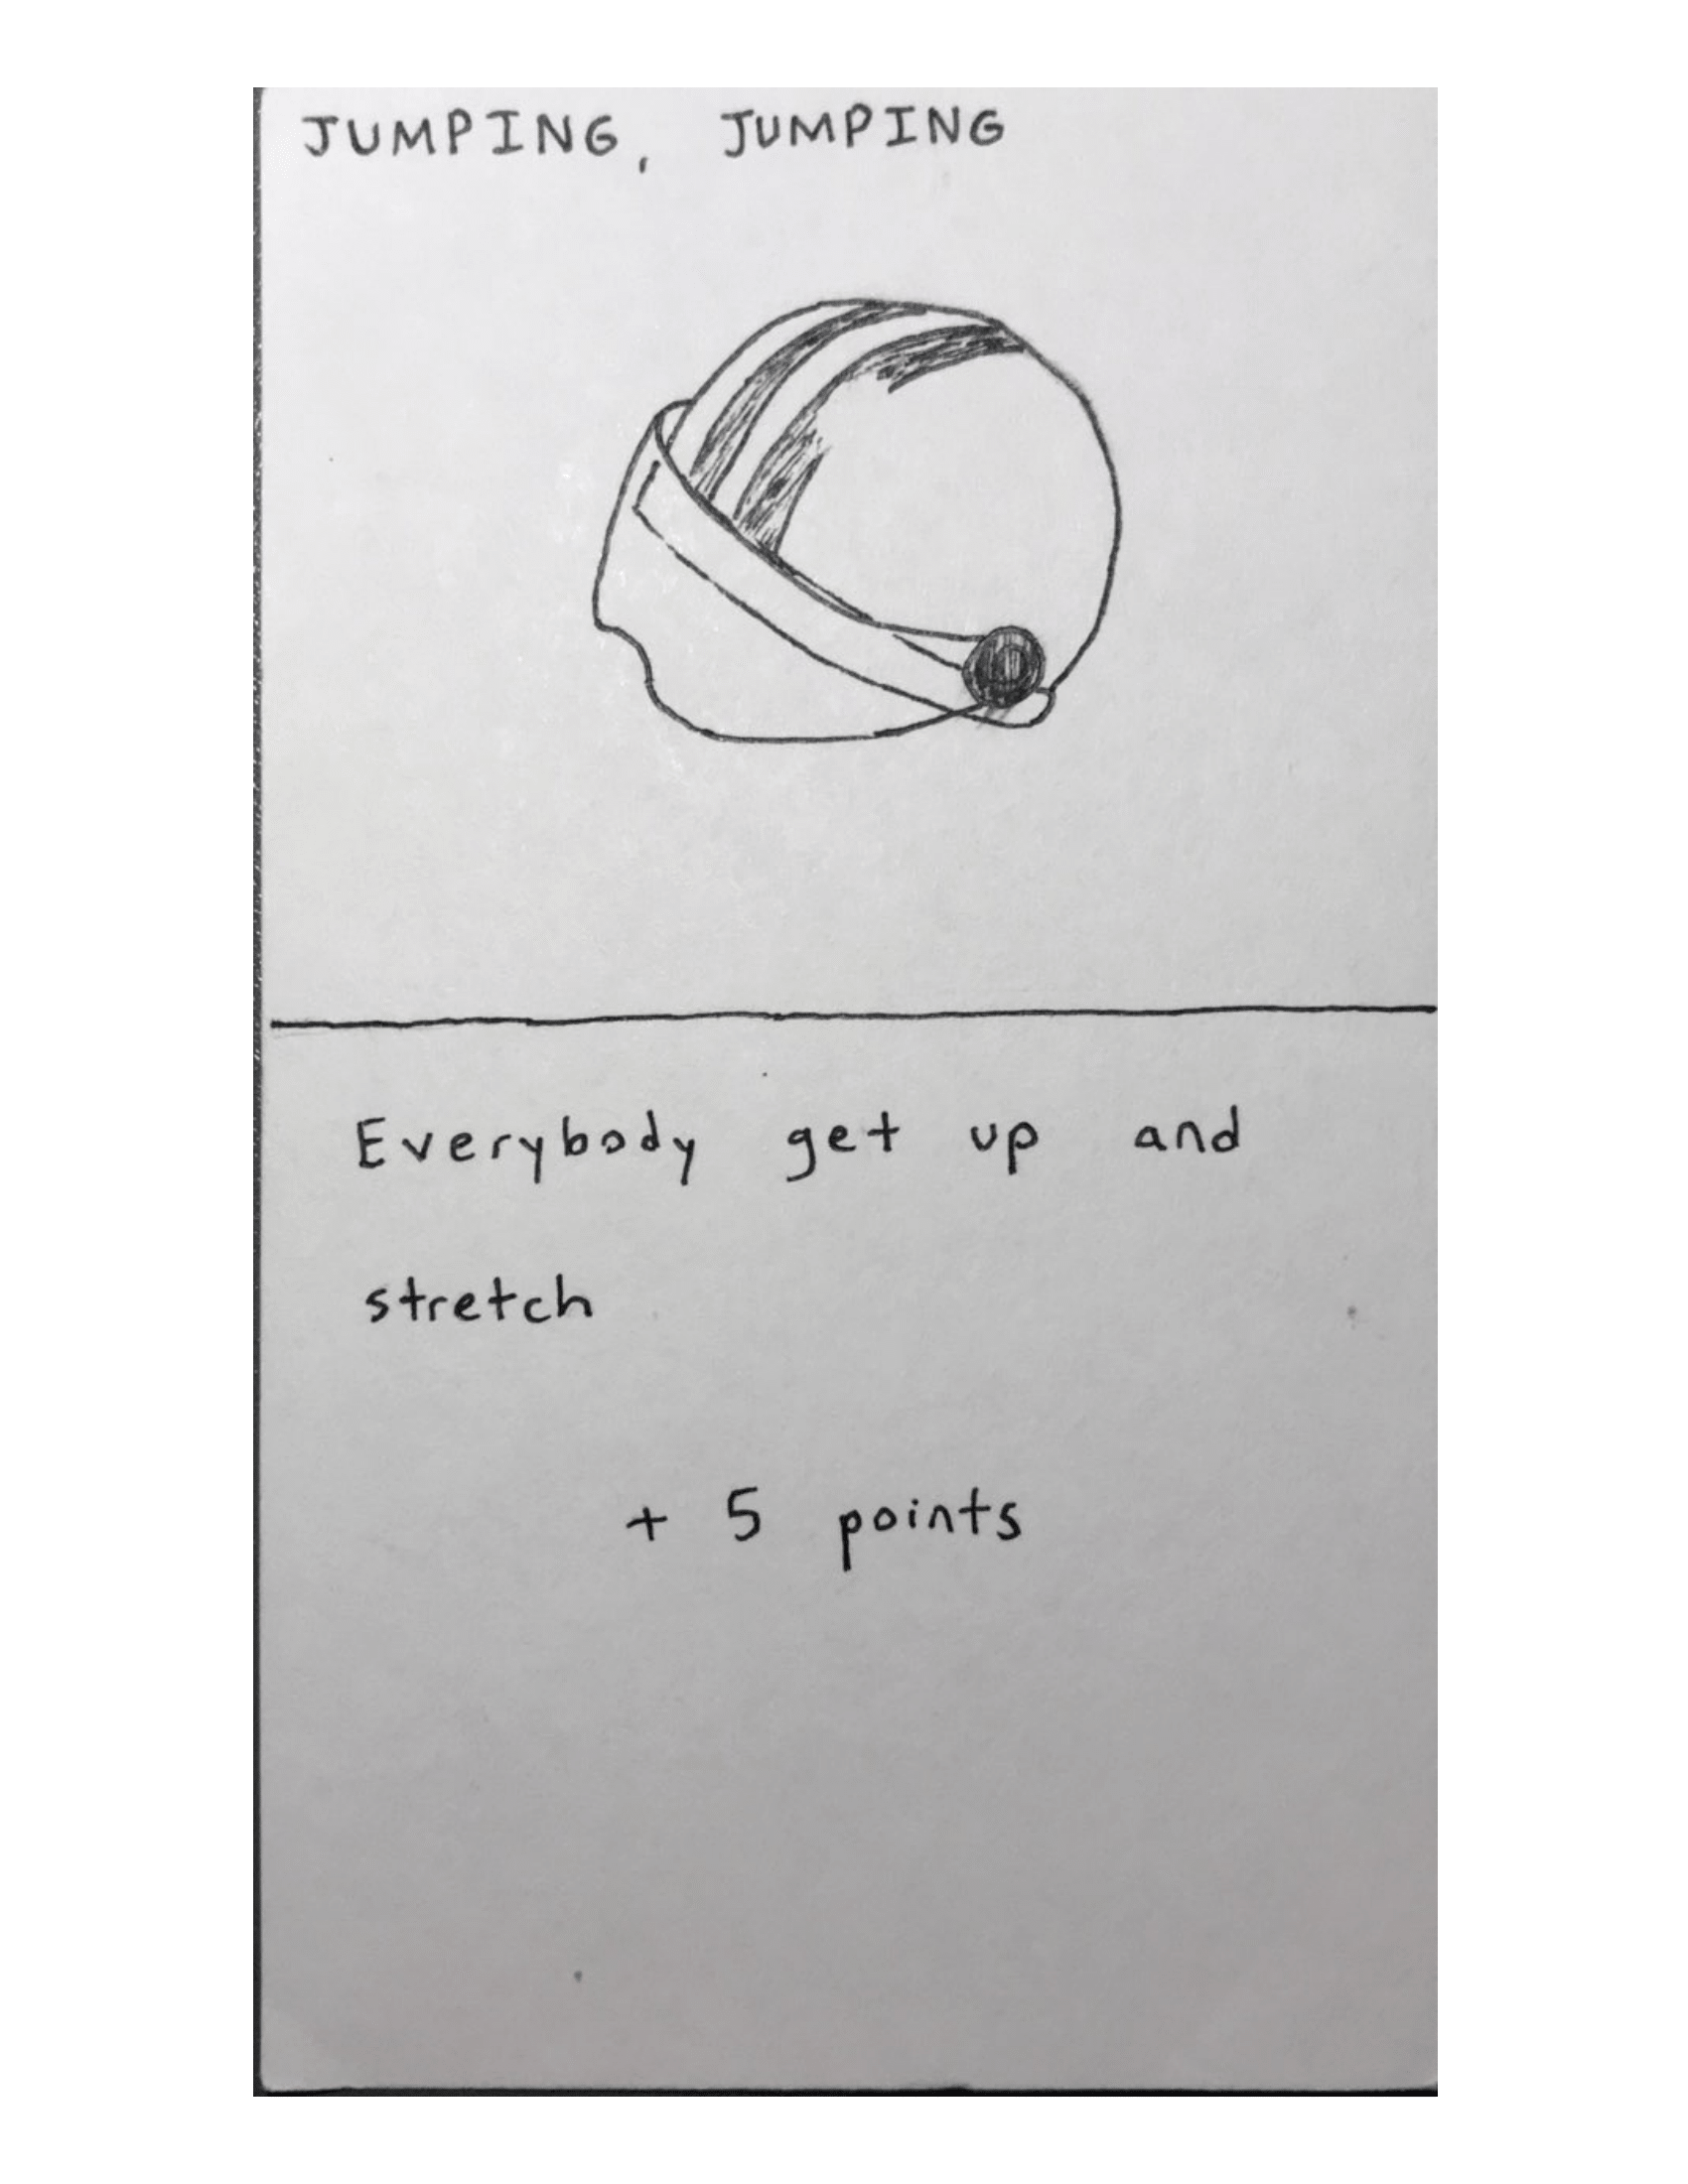 JUMPING, JUMPING
Everybody get up and
stretch
+ 5 points